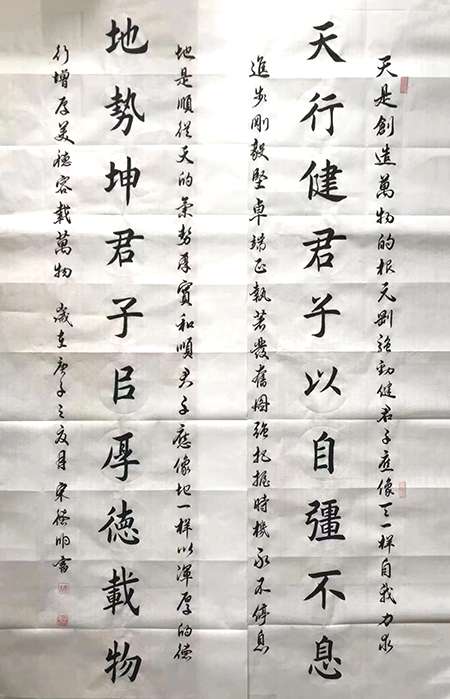 天是創造萬物的根元剛強勁健君子應像天一樣自我力求
天行健君子以自彊不息
進步剛毅堅卓端正執著發奮圖強把握時機永不停息
地是順從天的氣勢厚實和順君子應像地一樣以渾厚的德
地勢坤君子㠯厚徳載物
行增厚美德容載萬物 歲在庚子之夏月 宋明書